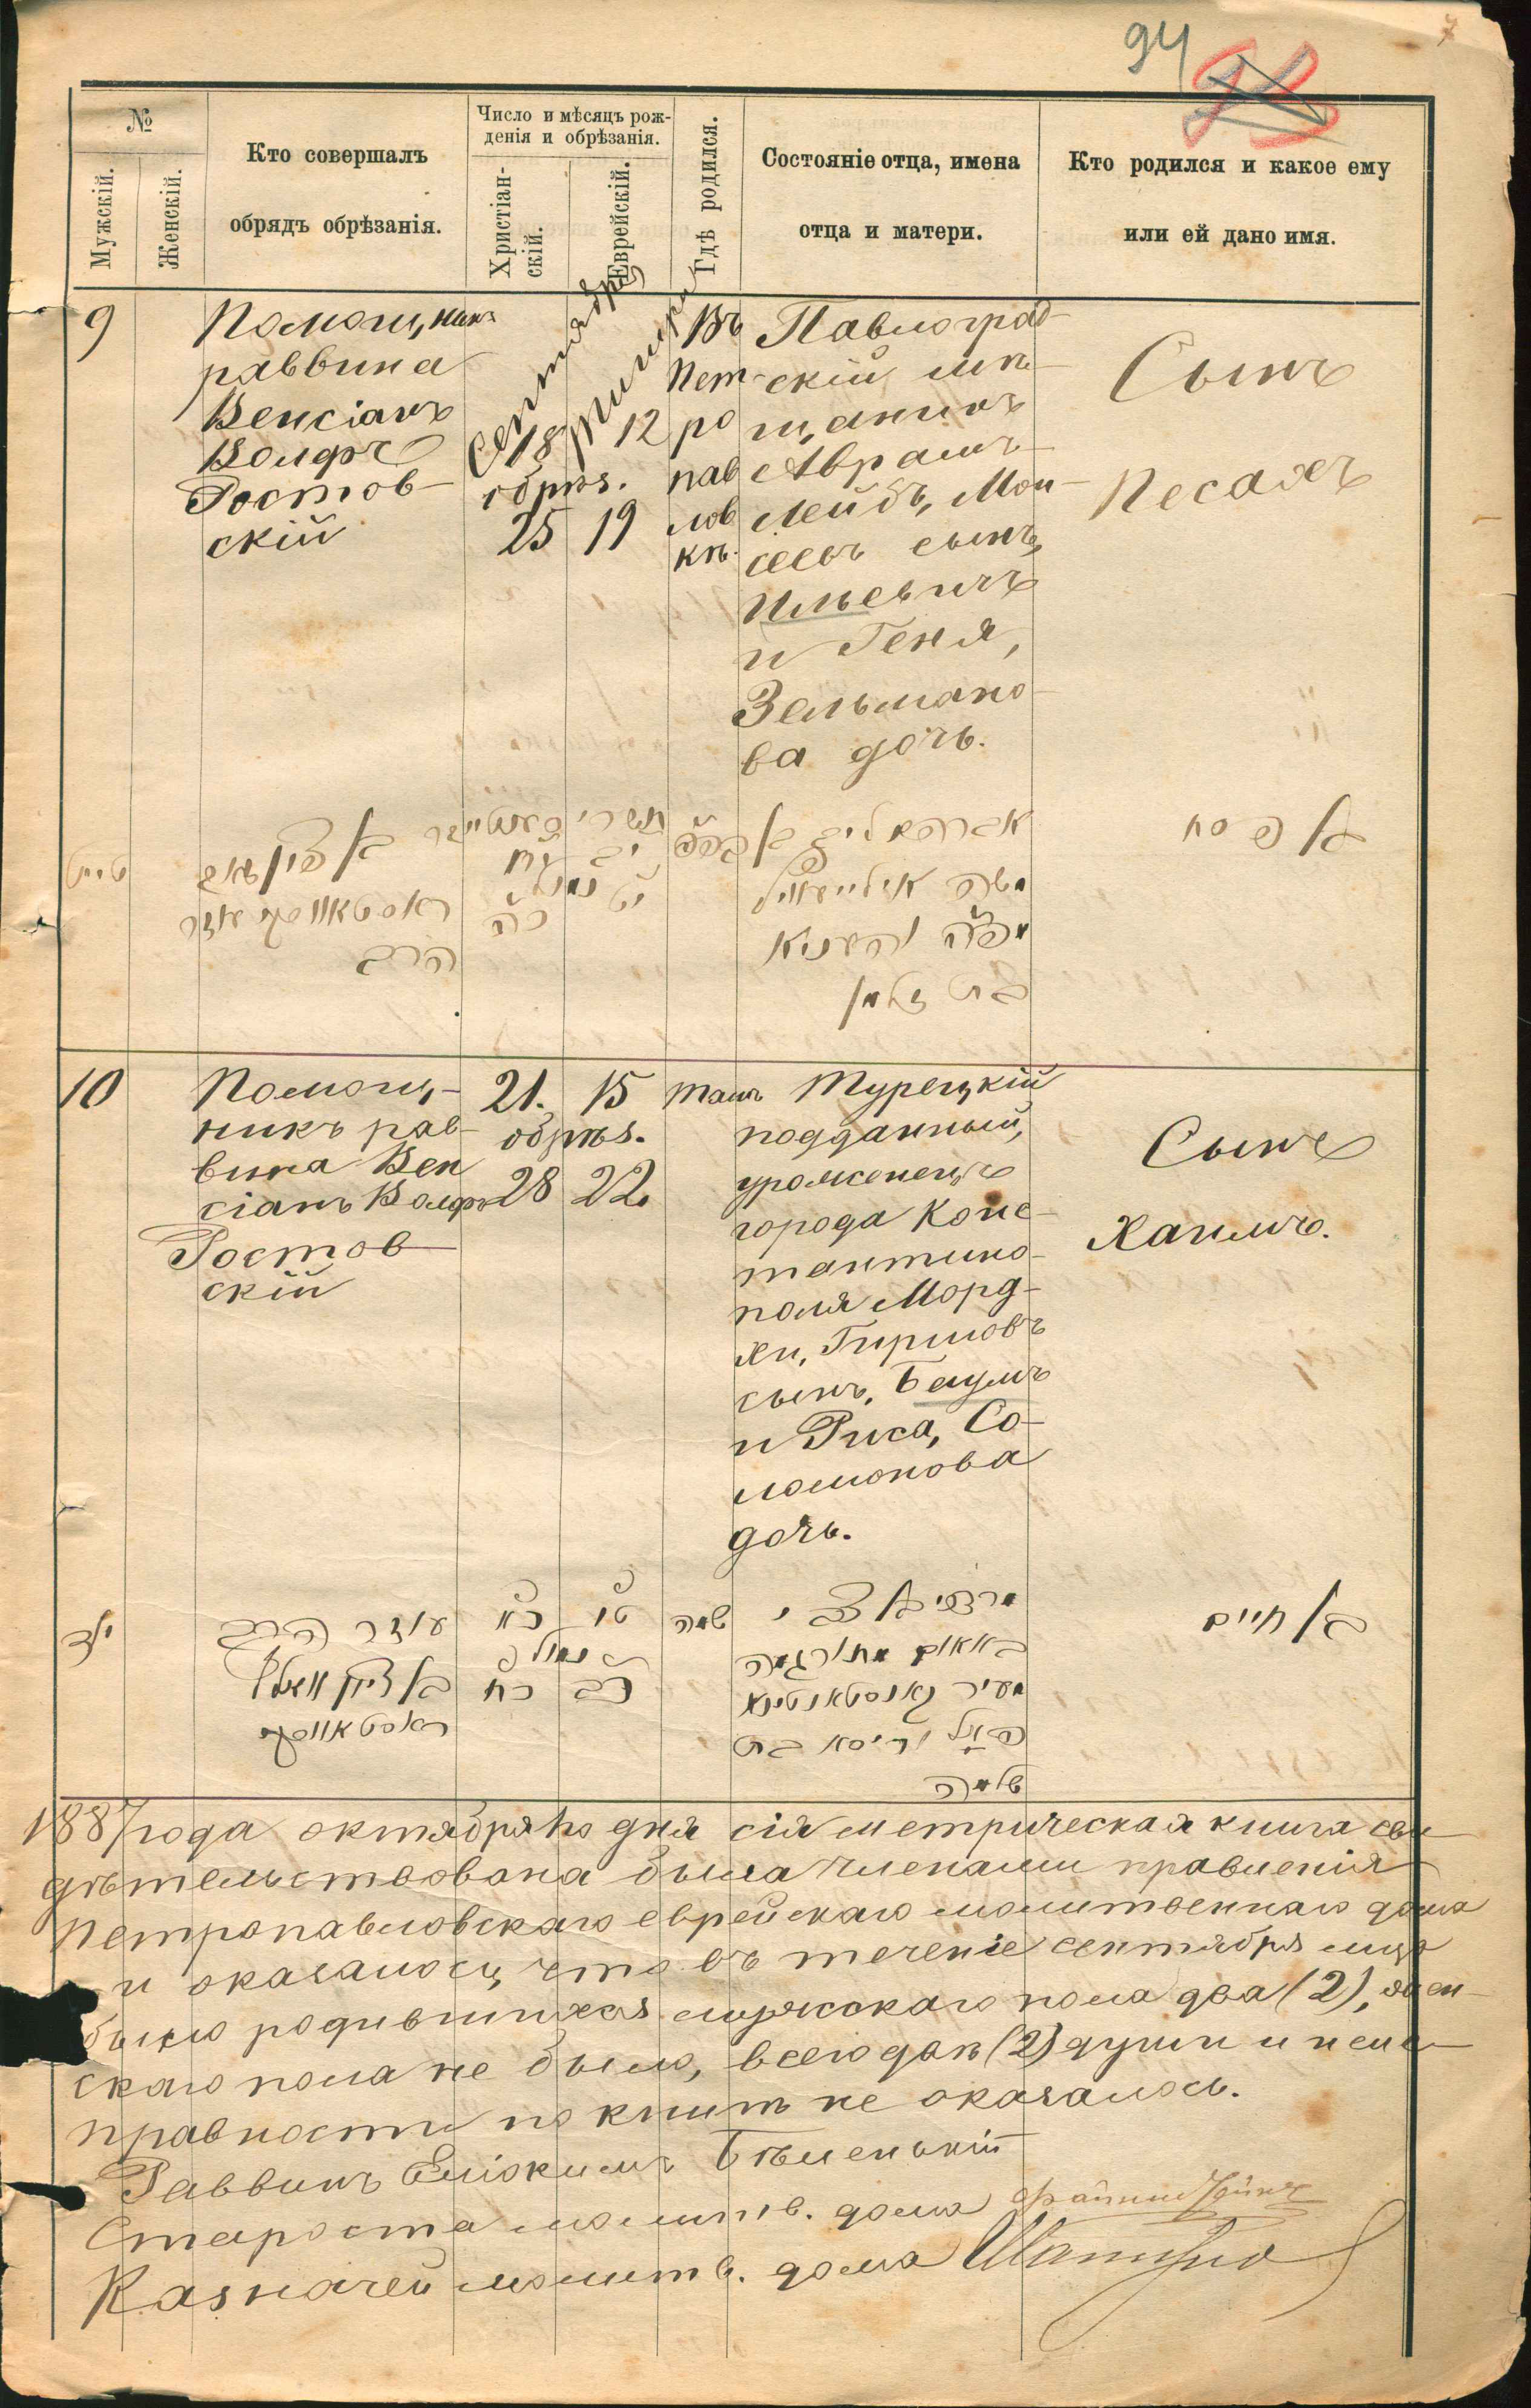 94
№
Мужскій.
Женскій.
Кто совершалъ
обрядъ обрѣзанія.
Число и мѣсяцъ рож-
денія и обрѣзанія.
Христіан-
скій.
Еврейскій.
Гдѣ родился.
Состояніе отца, имена
отца и матери.
Кто родился и какое ему
или ей дано имя.
9
Помощникъ
раввина
Бенсіанъ
Волфъ
Ростов-
скій
Сентября
18
обрѣз.
25
Тишри
12
19
Въ
Пет-
ро
пав
лов
кѣ.
Павлоград-
скій мѣ-
щанинъ
Абрамъ-
Лейбъ, Мои-
сеевъ сынъ,
Ильевичъ
и Геня,
Зельмано-
ва дочь.
Сынъ
Песахъ
תשרי
יב
יט
יח
נמול
כה
הרב
משה
בת זלמן
בן פסח
10
Помощ-
никъ рав-
вина Бен
сіанъ Волфъ
Ростов-
скій
21. 15
обрѣз.
28 22
тамъ
Турецкій
подданный,
уроженецъ
города Конс-
тантино-
поля Морд-
хи, Гиршовъ
сынъ, Баумъ
и Риса, Со-
ломонова
дочь.
Сынъ
Хаимъ.
עוזר הרב
בן ציון וואלף
ראסטאווסקי
כא
טו
נמול
כח
כב
שמה
מרדכי בן צבי
באאום
מעיר קאנסטאנטינא
פאל וריסא בת
שלמה
בן חיים
1887 года октября 1го дня сія метрическая книга сви-
дѣтельствована была членами правленія
Петропавловскаго еврейскаго молитвеннаго дома
и оказалось, что въ теченіе сентября мца
было родившихся мужскаго пола два (2), жен-
скаго пола не было, всего двѣ (2) души и неис-
правности по книгѣ не оказалось.
Раввинъ Еліокимъ Бѣленькій
Староста молитв. дома
Казначей молитв. дома Шапиро